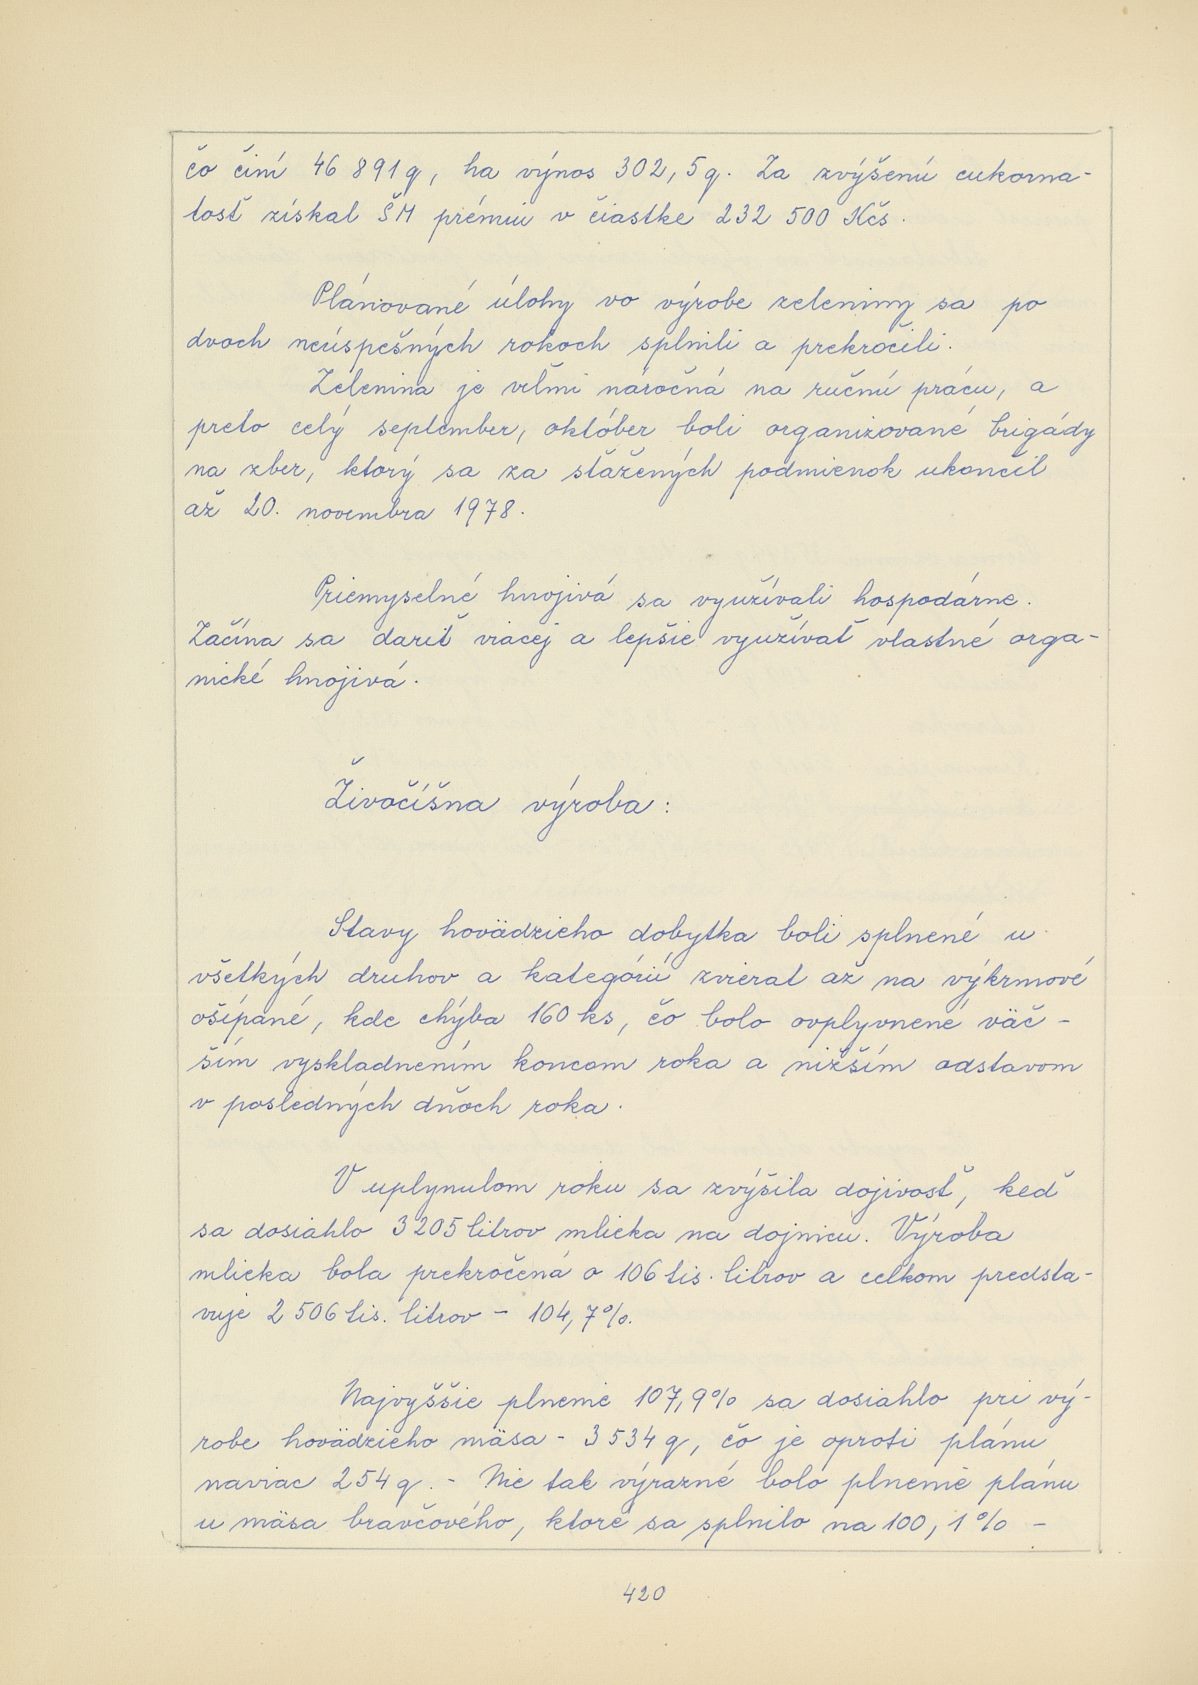 čo činí 46 891 q, ha výnos 302,5 q. Za zvýšenú cukorna-
tosť získal ŠM prémiu v čiastke 232 500 Kčs.
Plánované úlohy vo výrobe zeleniny sa po
dvoch neúspešných rokoch splnili a prekročili.
Zelenina je veľmi náročná na ručnú prácu, a
preto celý september, október boli organizované brigády
na zber, ktorý sa za sťažených podmienok ukončil
až 20. novembra 1978.
Priemyselné hnojivá sa využívali hospodárne.
Začína sa dariť viacej a lepšie využívať vlastné orga-
nické hnojivá.
Živočíšna výroba:
Stavy hovädzieho dobytka boli splnené u
všetkých druhov a kategórií zvierat až na výkrmové
ošípané, kde chýba 160 ks, čo bolo ovplyvnené väč-
ším vyskladnením koncom roka a nižším odstavom
v posledných dňoch roka.
V uplynulom roku sa zvýšila dojivosť, keď
sa dosiahlo 3 205 litrov mlieka na dojnicu. Výroba
mlieka bola prekročená o 106 tis. litrov a celkom predsta-
vuje 2 506 tis. litrov - 104,7%.
Najvyššie plnenie 107,9% sa dosiahlo pri vý-
robe hovädzieho mäsa - 3 534 q, čo je oproti plánu
naviac 254 q. - Nie tak výrazné bolo plnenie plánu
u mäsa bravčového, ktoré sa splnilo na 100,1% -
420